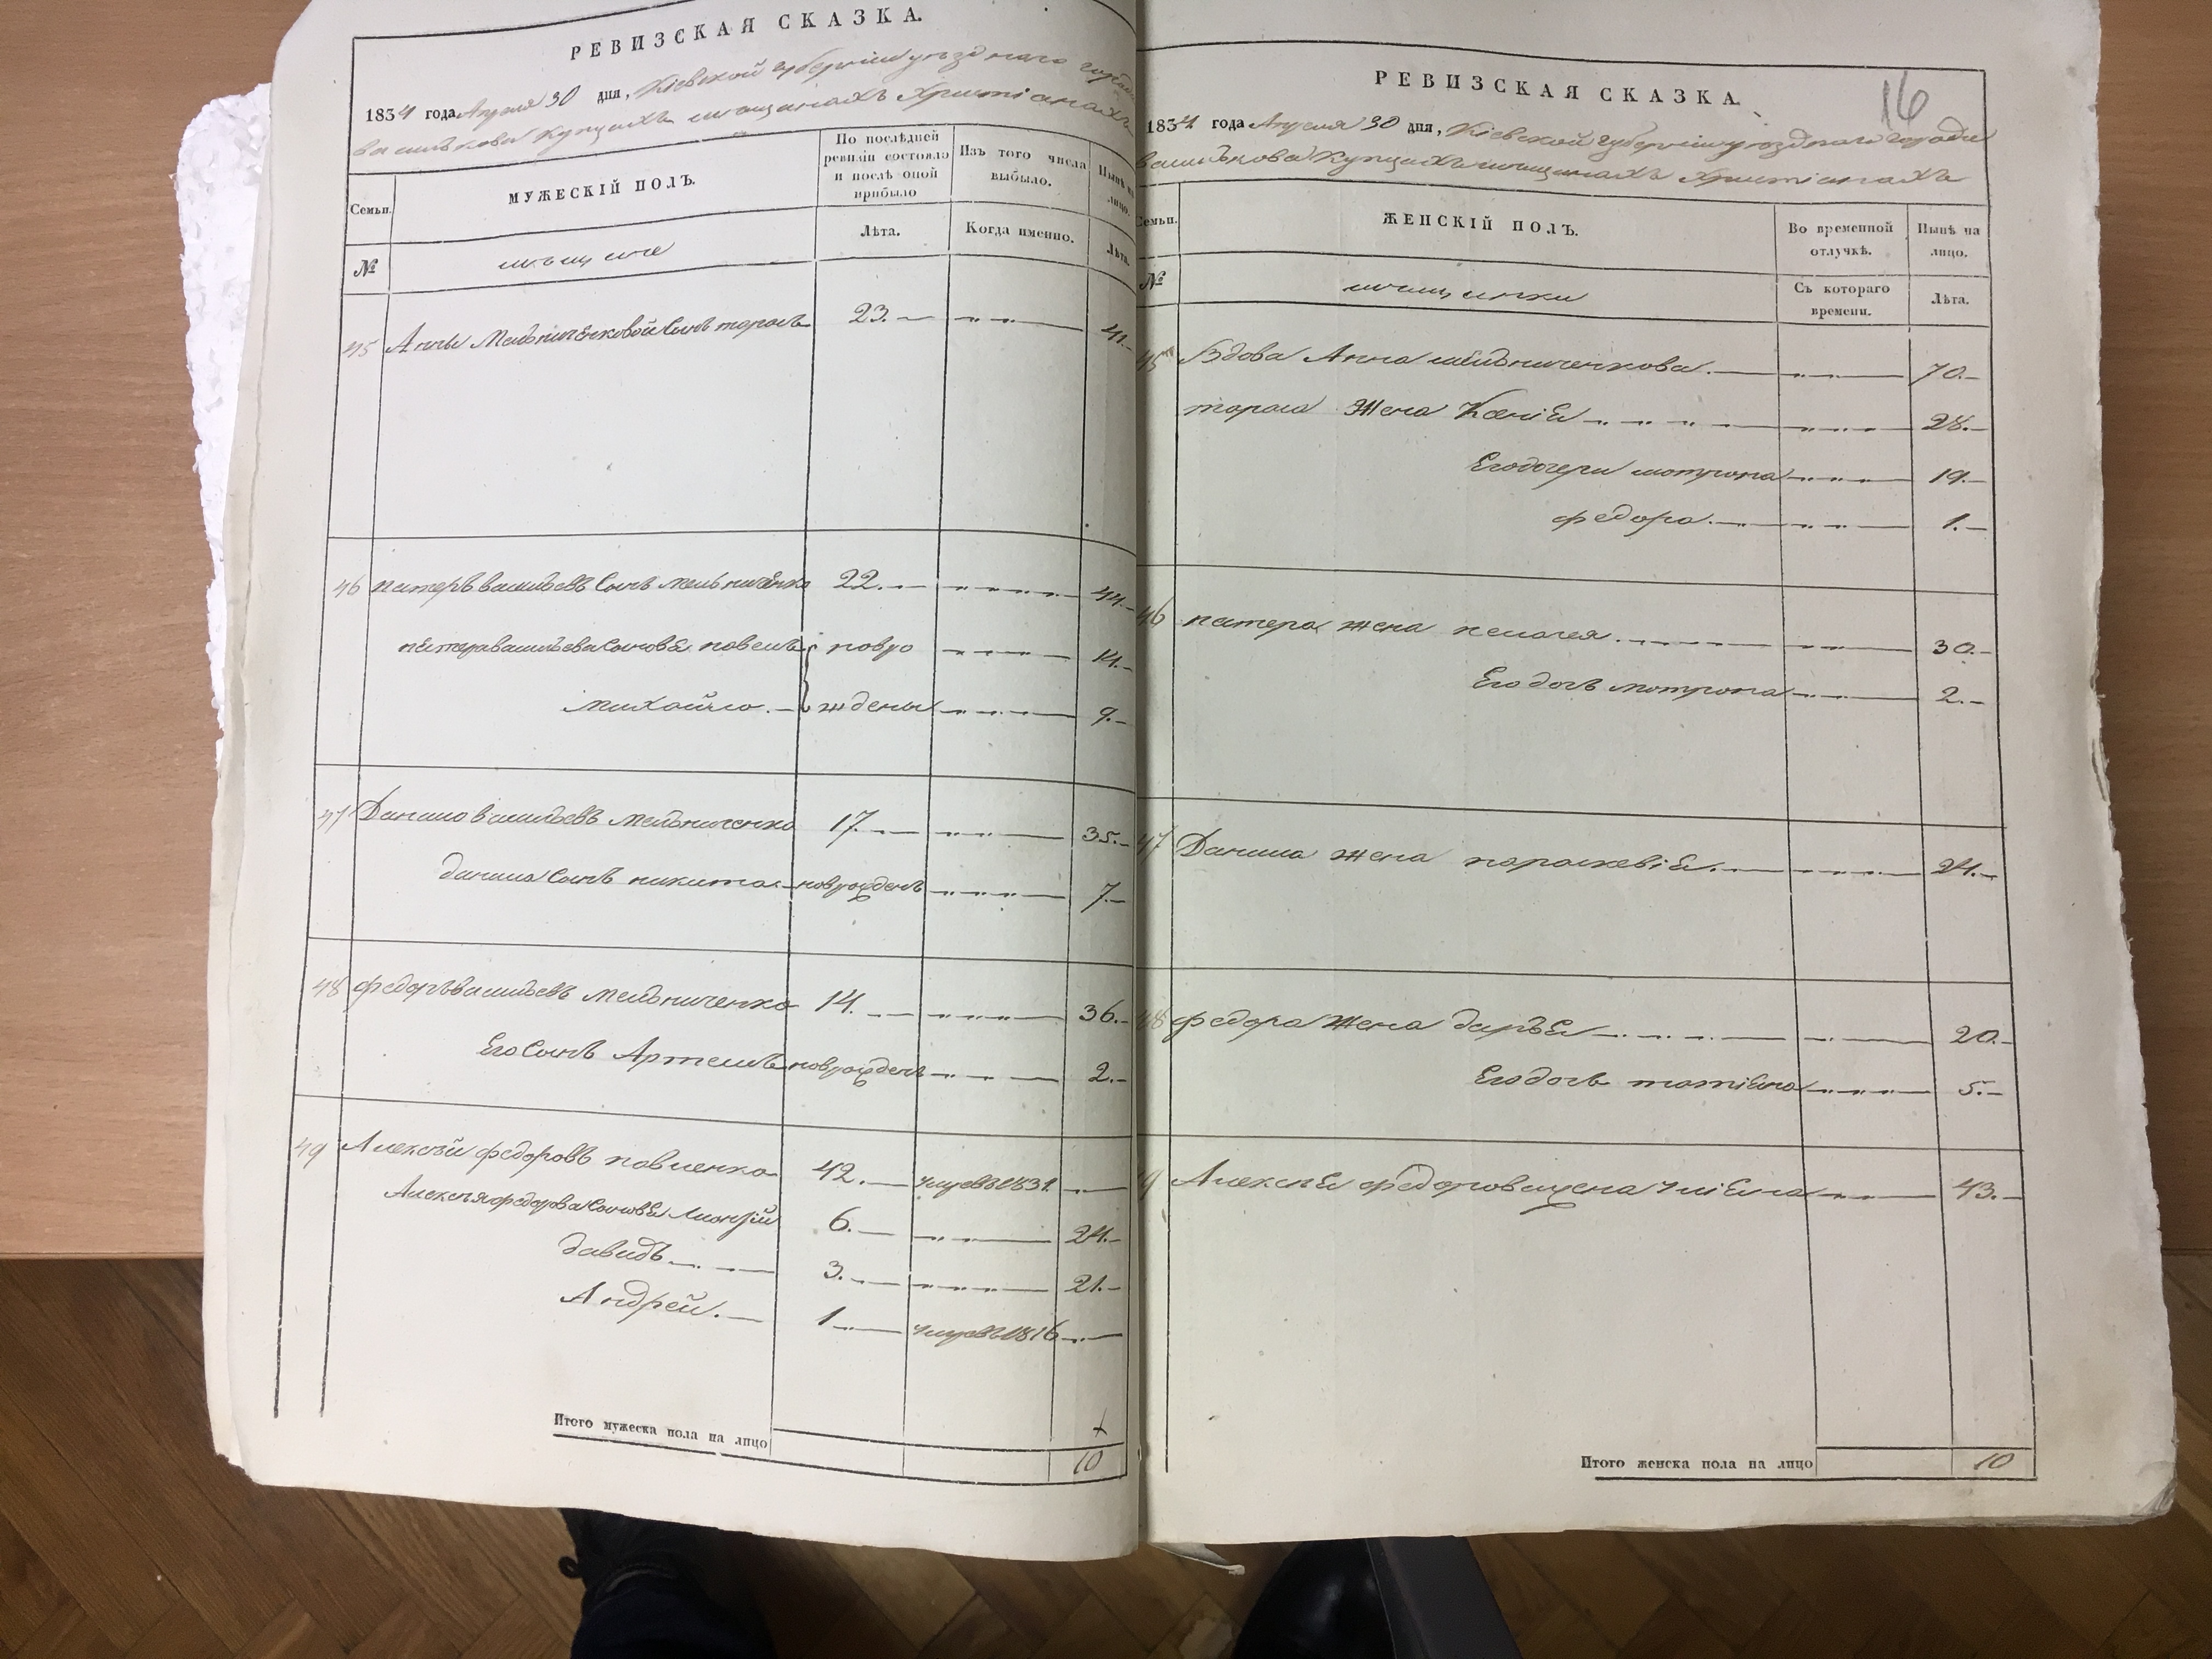 РЕВИЗСКАЯ СКАЗКА.
1834 года Апреля 30 дня, Кіевской губерніи уезднаго города
василькова Купцахъ мещанахъ Христіанахъ
Семьи.
МУЖЕСКІЙ ПОЛЪ.
По послѣдней ревизіи состояло и послѣ оной прибыло
Изъ того числа выбыло.
Нынѣ на лицо.
№
мещане
Лѣта.
Когда именно.
Лѣта.
45 Анны Мельниченковой Сынъ тарасъ 23. 41.
46 петеръ васильевъ Сынъ Мельниченко 22. 44.
петера васильева Сыновья павелъ новро 14.
михайло. ждены 9.
47 Данило васильевъ мельниченко 17. 35.
данила Сынъ никита новрожденъ 7.
48 федоръ васильевъ мельниченко 14. 36.
Его Сынъ Артемъ новрожденъ 2.
49 Алексѣй федоровъ павленко 42. умре въ 1831
Алексѣя федорова Сыновья 6. 24.
давидъ 3. 21.
Андрей. 1 умре въ 1816
Итого мужеска пола на лицо 10
РЕВИЗСКАЯ СКАЗКА.
16
1834 года Апреля 30 дня, Кіевской губерніи уезднаго города
василькова Купцахъ мещанахъ Христіанахъ
Семьи.
ЖЕНСКІЙ ПОЛЪ.
Во временной отлучкѣ.
Нынѣ на лицо.
№
мещанки
Съ котораго времени.
Лѣта.
45 Вдова Анна мельниченкова. 70.
тараса Жена Ксенія 28.
Его дочери мотрона 19.
федора. 1.
46 петера жена пелагея. 30.
Его дочь мотрона 2.
47 Данила жена параскевія. 24.
48 федора Жена дарья 20.
Его дочь татіяна 5.
49 Алексѣя федорова жена уліяна 43.
Итого женска пола на лицо 10